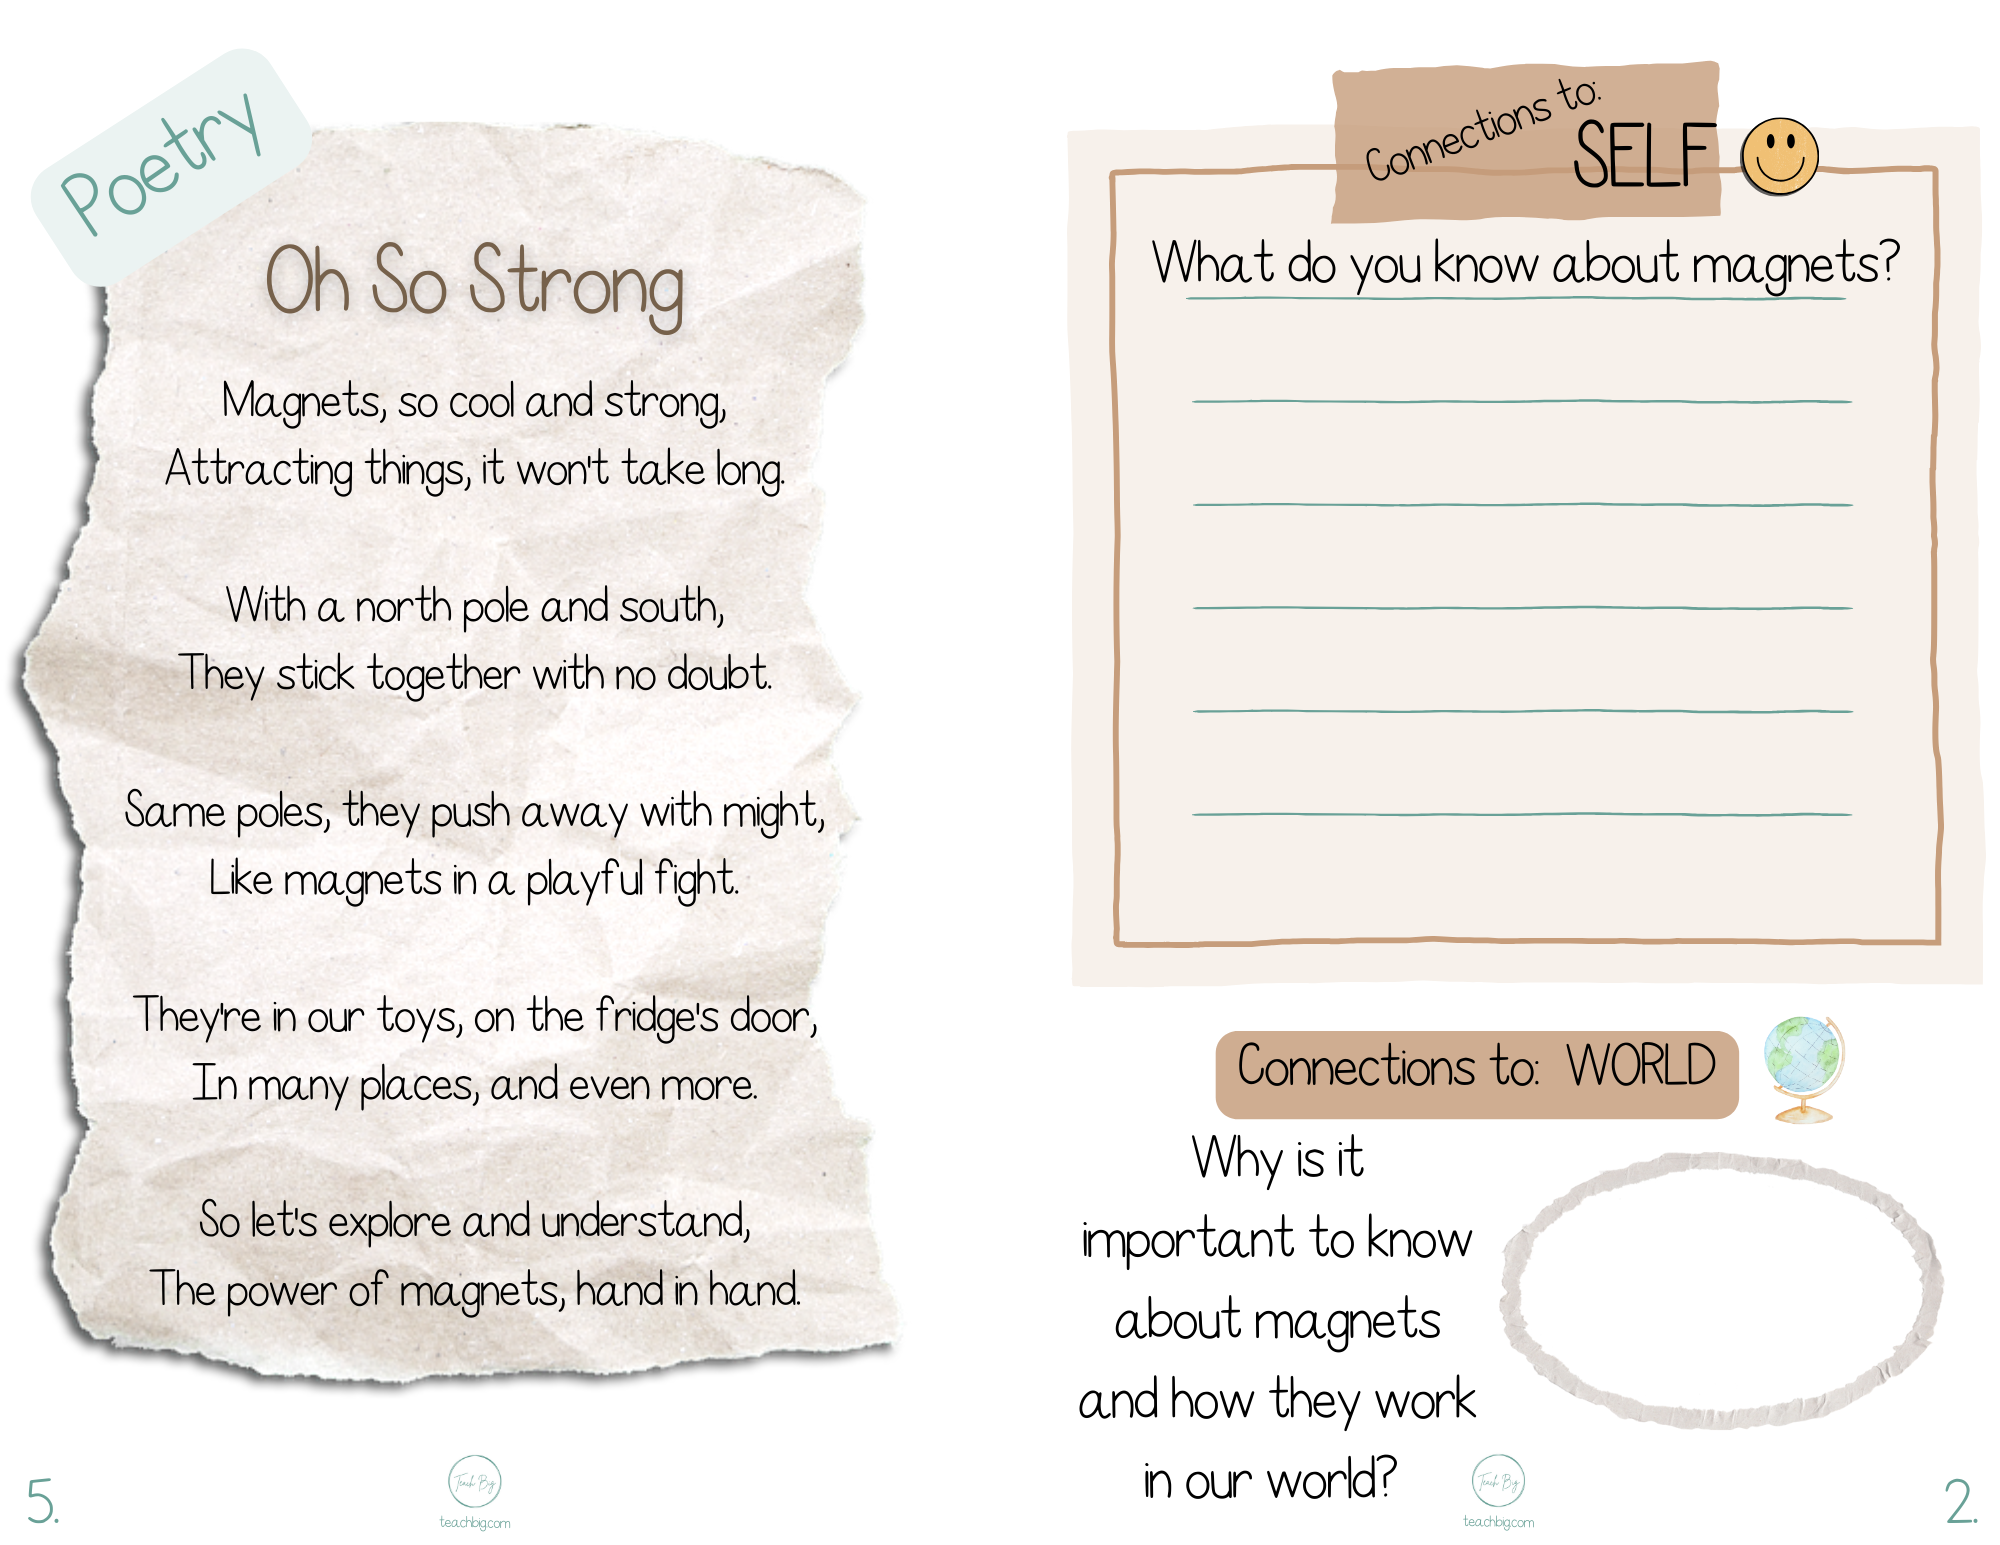 Poetry
Oh So Strong
Magnets, so cool and strong,
Attracting things, it won't take long.
With a north pole and south,
They stick together with no doubt.
Same poles, they push away with might,
Like magnets in a playful fight.
They're in our toys, on the fridge's door,
In many places, and even more.
So let's explore and understand,
The power of magnets, hand in hand.
5.
Teach Big
teachbig.com
Connections to:
SELF
What do you know about magnets?
Connections to: WORLD
Why is it
important to know
about magnets
and how they work
in our world?
Teach Big
teachbig.com
2.